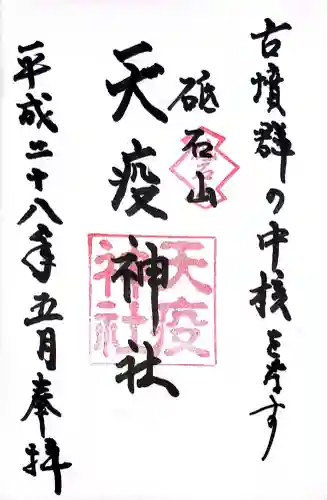 古墳群の中核を為す
砥石山
天疫神社
天疫
神社
平成二十八年五月奉拝